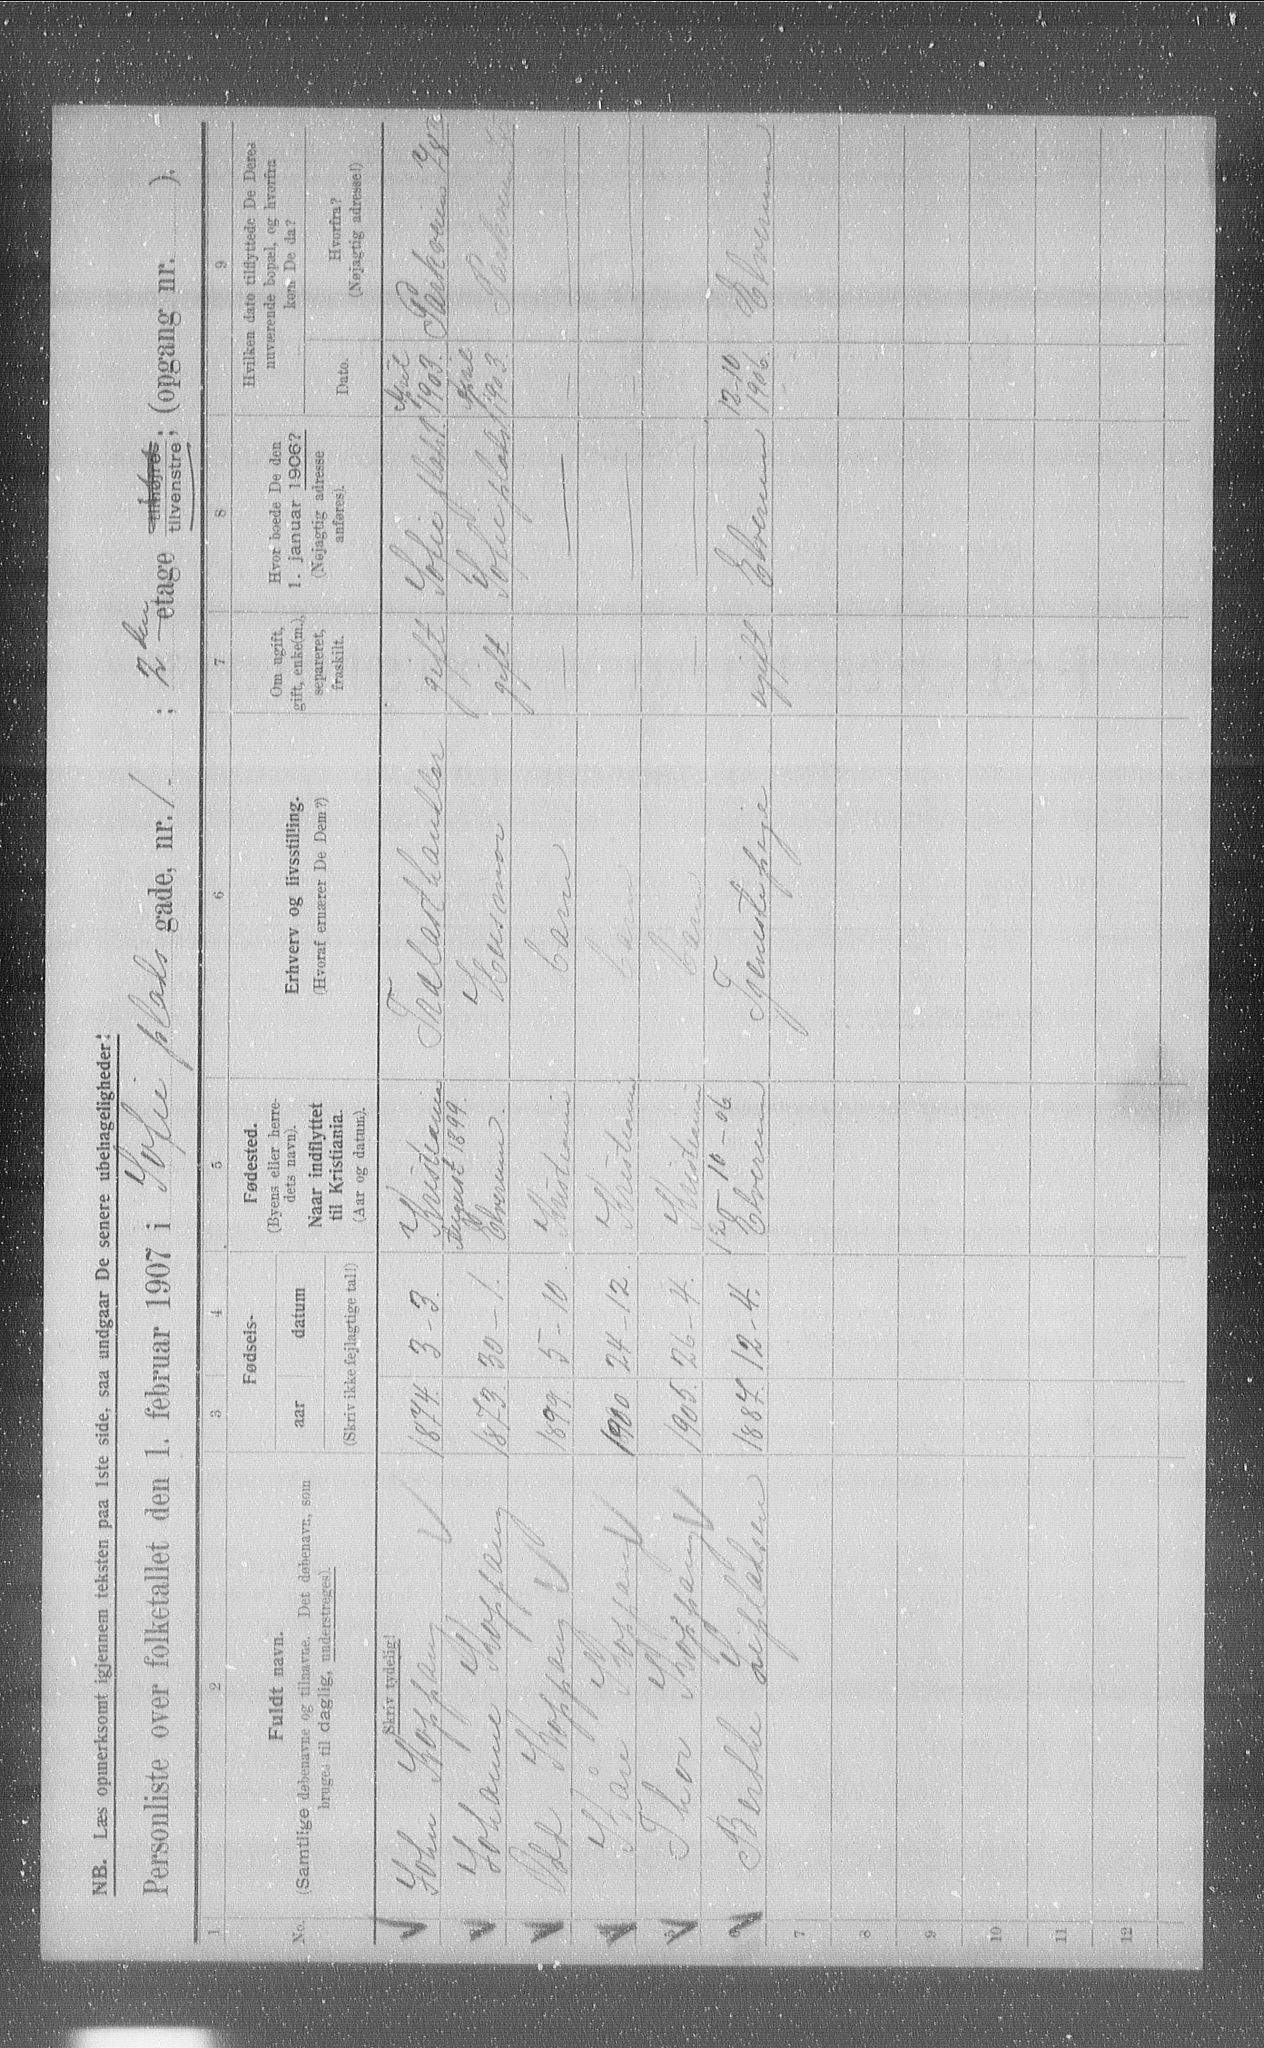 NB. Læs opmerksomt igjennem teksten paa 1ste side, saa undgaar De senere ubehageligheder:
Personliste over folketallet den 1. februar 1907 i Sofie plads gade, nr. 1 ; 2den etage tilhøjre; tilvenstre; (opgang nr. ).
1 2 3 4 5 6 7 8 9
No.
Fuldt navn.
(Samtlige døbenavne og tilnavne. Det døbenavn, som
bruges til daglig, understreges).
Fødsels-
aar datum
(Skriv ikke fejlagtige tal!)
Fødested.
(Byens eller herre-
dets navn).
Naar indflyttet
til Kristiania.
(Aar og datum).
Erhverv og livsstilling.
(Hvoraf ernærer De Dem?)
Om ugift,
gift, enke(m.),
separeret,
fraskilt.
Hvor boede De den
1. januar 1906?
(Nøjagtig adresse
anføres).
Hvilken dato tilflyttede De Deres
nuværende bopæl, og hvorfra
kom De da?
Dato.
Hvorfra?
(Nøjagtig adresse!)
Skriv tydelig!
John Koppang 1874. 3-3. Kristiania Trælasthandler gift Sofie plads 1. 1903.
2 Johanne Koppang 1873. 30-1. August 1899. Elverum. Husmor gift Sofie plads 1. 1903.
3 Koppang 1899. 5-10. Kristiania barn
4 Kåre Koppang 1900 24-12. Kristiania barn
5 Thor Koppang 1905. 26-4. Kristiania barn
6 Berthe 1887. 12-4. 12-10-06 Elverum Tjenestepige ugift Elverum 12-10 1906. Elverum
7
8
9
10
11
12